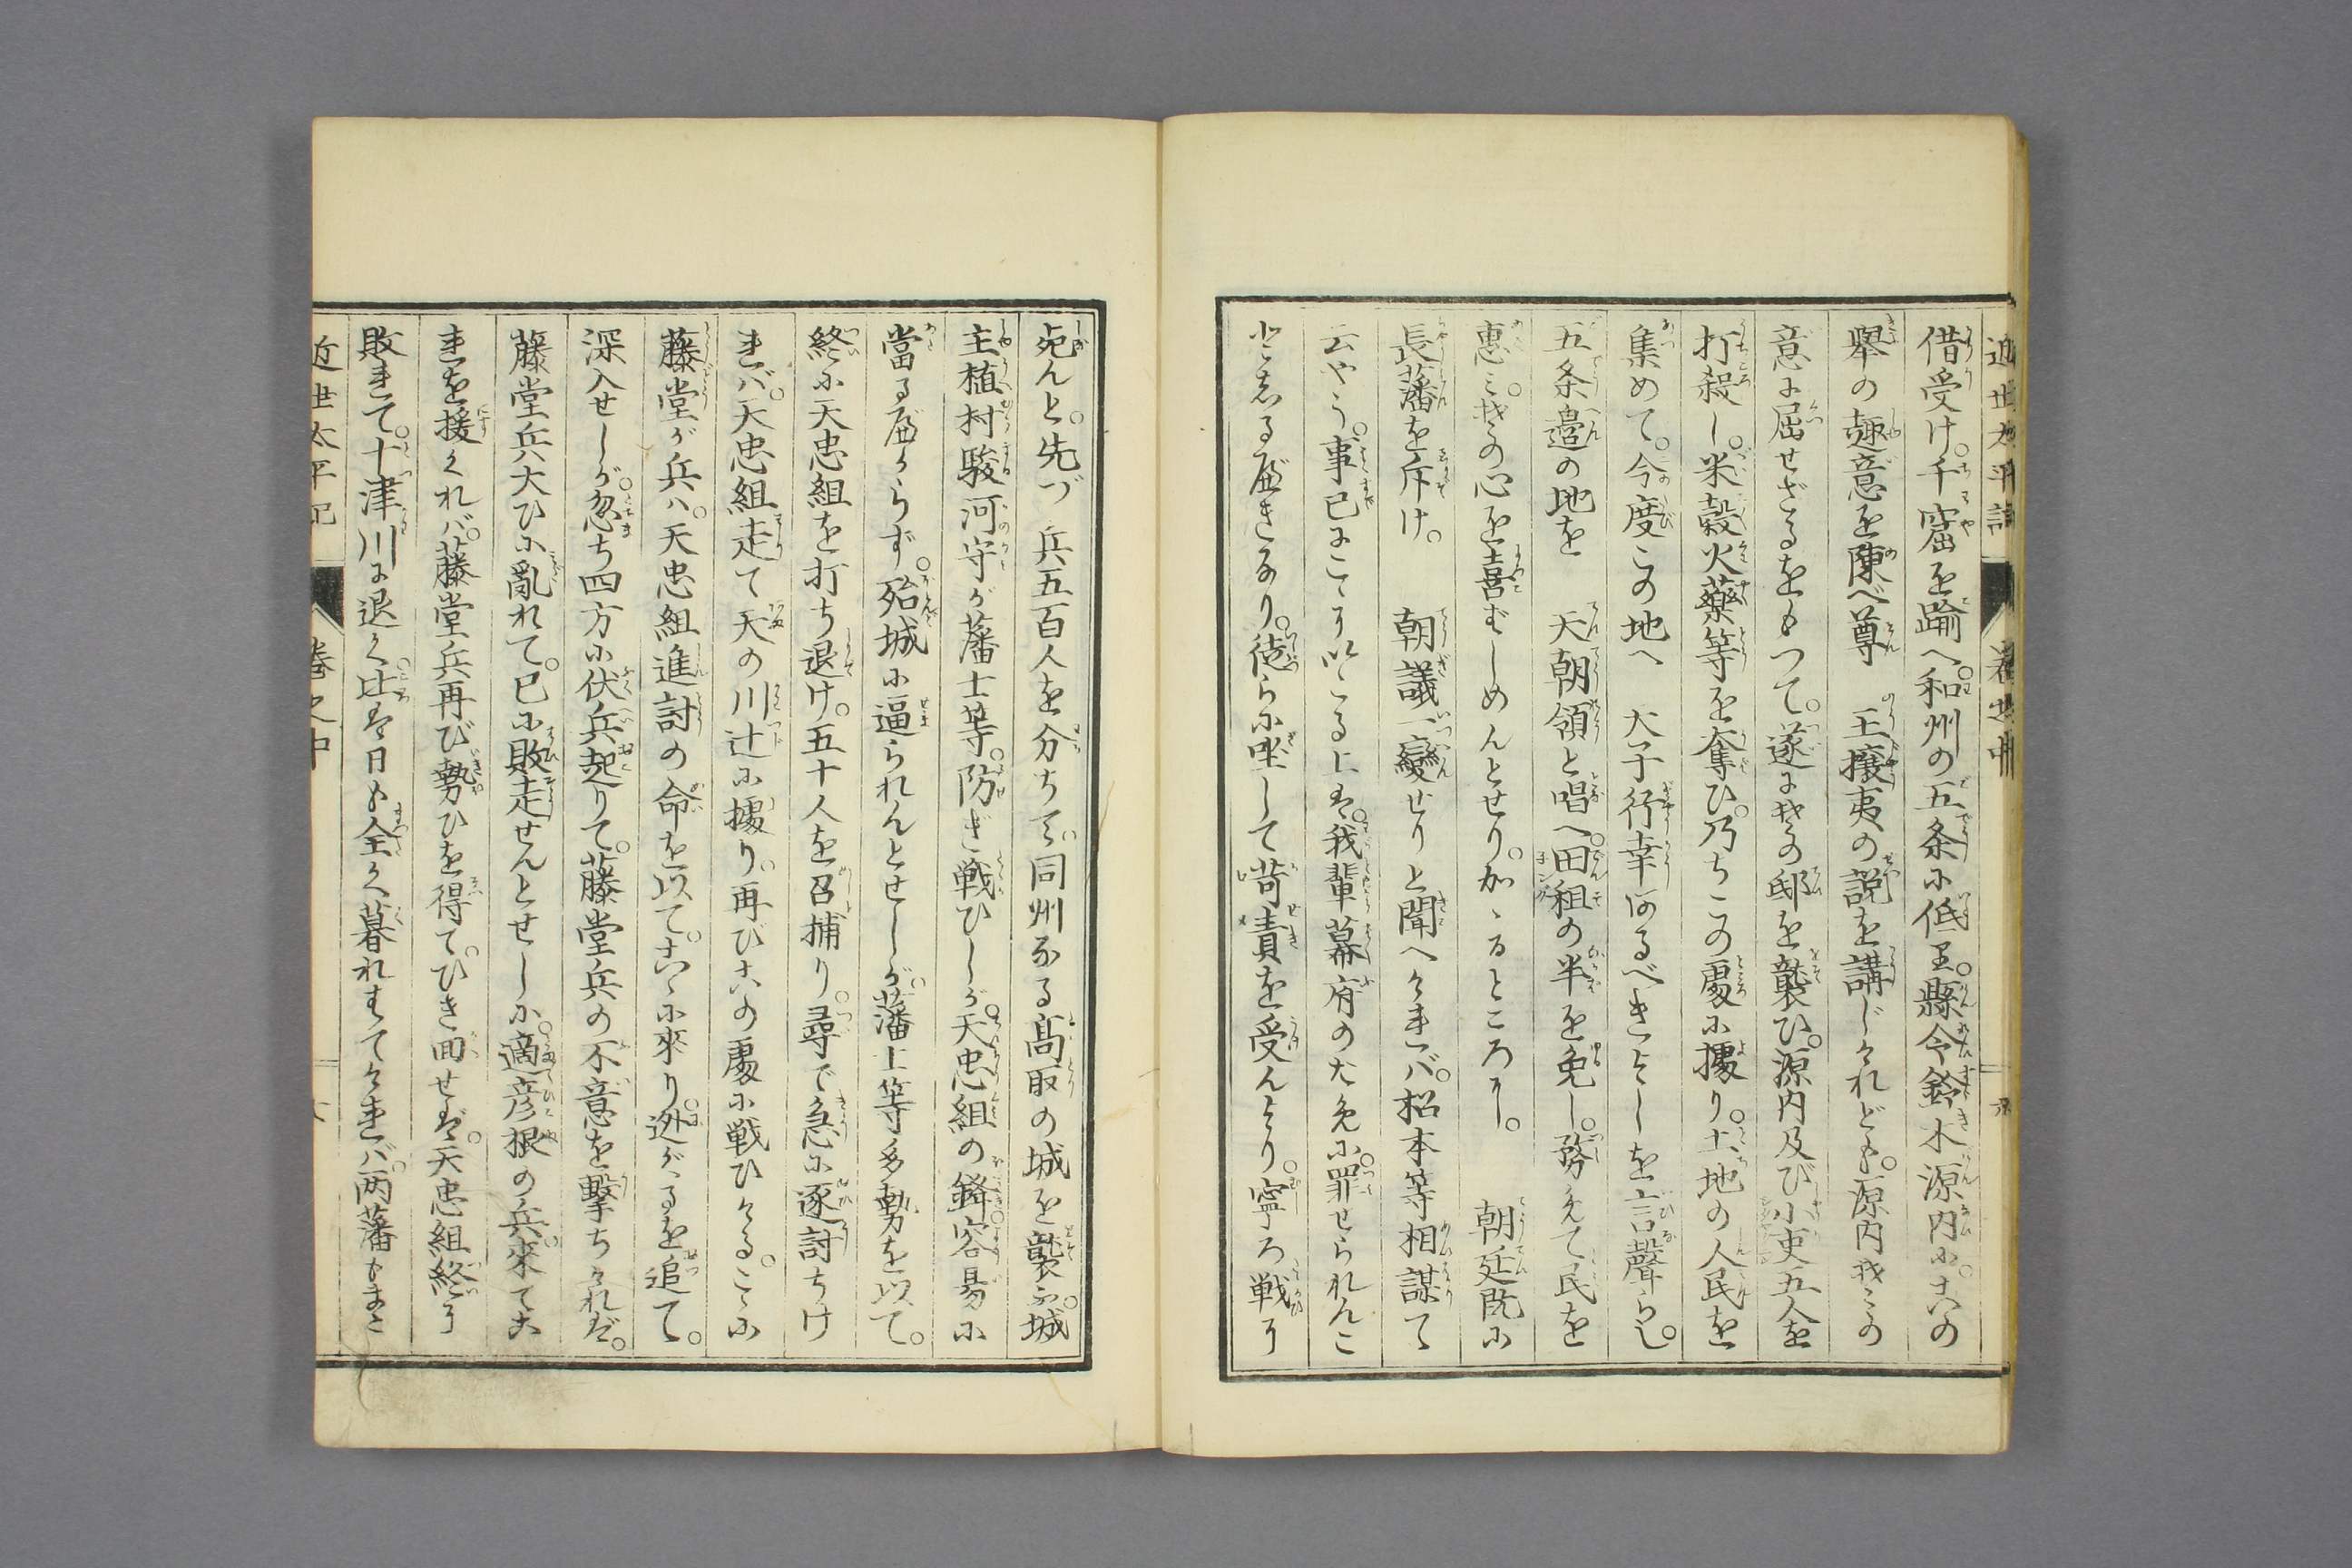 近世太平記 巻之中
借受け。千窟を踰へ。和州の五条に低る。縣令鈴木源内に。この
舉の趣意を陳べ尊 王攘夷の説を講じけれども。源内我意の
意に屈せざるをもつて。遂に其の邸を襲ひ。源内及び小吏五人を
打殺し。米穀火藥等を奪ひ。乃ちこの處に據り。土地の人民を
集めて。今度この地へ 天子行幸あるべきよしを言聲らし。
五条邉の地を 天朝領と唱へ。田租の半を免し。務めて民を
惠み。其の心を喜ばしめんとせり。かゝるところに。 朝廷既に
長藩を斥け。 朝議一變せりと聞へければ。松本等相謀て
云やう。事已にこゝに以たる上は。我輩幕府の為に罪せられんこ
と忘る可きなり。徒らに坐して苛責を受んより。寧ろ戦に
死んと。先づ兵五百人を分ちて。同州なる高取の城を襲ふ。城
主植村駿河守が藩士等。防ぎ戦ひしが。天忠組の鋒容易に
當る可からず。殆城に逼られんとせしが。藩士等多勢を以て。
終に天忠組を打ち退け。五十人を召捕り。尋で急に逐討ちけ
れバ。天忠組走て天の川辻に據り。再びこの處に戦ひける。こゝに
藤堂が兵ハ。天忠組進討の命を以て。こゝに來り。迯がるを追て。
深入せしが。忽ち四方に伏兵起りて。藤堂兵の不意を撃ちければ。
藤堂兵大ひに亂れて。已に敗走せんとせしに。適彦根の兵來てこ
れを援くれバ。藤堂兵再び勢ひを得て。ひき回せば。天忠組終に
敗れて。十津川に退く。此は日も全く暮れはてけれバ。両藩もまた
近世太平記 巻之中